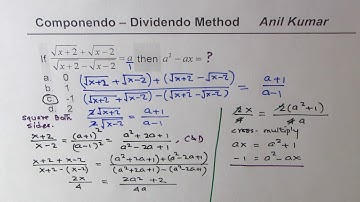 Componendo – Dividendo Method Anil Kumar
If (√(x+2) + √(x-2)) / (√(x+2) - √(x-2)) = a/1 then a² - ax = ?
a. 0
b. 1
c. -1
d. 2
((√(x+2) + √(x-2)) + (√(x+2) - √(x-2))) / ((√(x+2) + √(x-2)) - (√(x+2) - √(x-2))) = (a+1)/(a-1)
square both sides.
2√(x+2) / 2√(x-2) = (a+1)/(a-1)
(x+2)/(x-2) = (a+1)²/(a-1)² = (a²+2a+1)/(a²-2a+1), C&D
(x+2 + x-2)/(x+2 - (x-2)) = ((a²+2a+1)+(a²-2a+1))/((a²+2a+1)-(a²-2a+1))
2x/4 = (2a²+2)/4a
2x/4 = 2(a²+1)/4a
cross-multiply
ax = a²+1
-1 = a²-ax